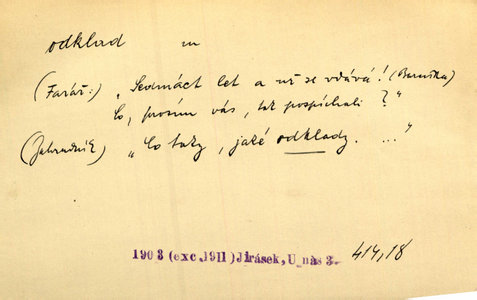 odklad m
(Farář:) „Sedmnáct let a už se vdává! (Barunka)
Co, prosím vás, tak pospíchali?“
(Zahradník) „Co taky, jaké odklady. ...“
1903 (exc. 1911) Jirásek, U nás 3. 414,18